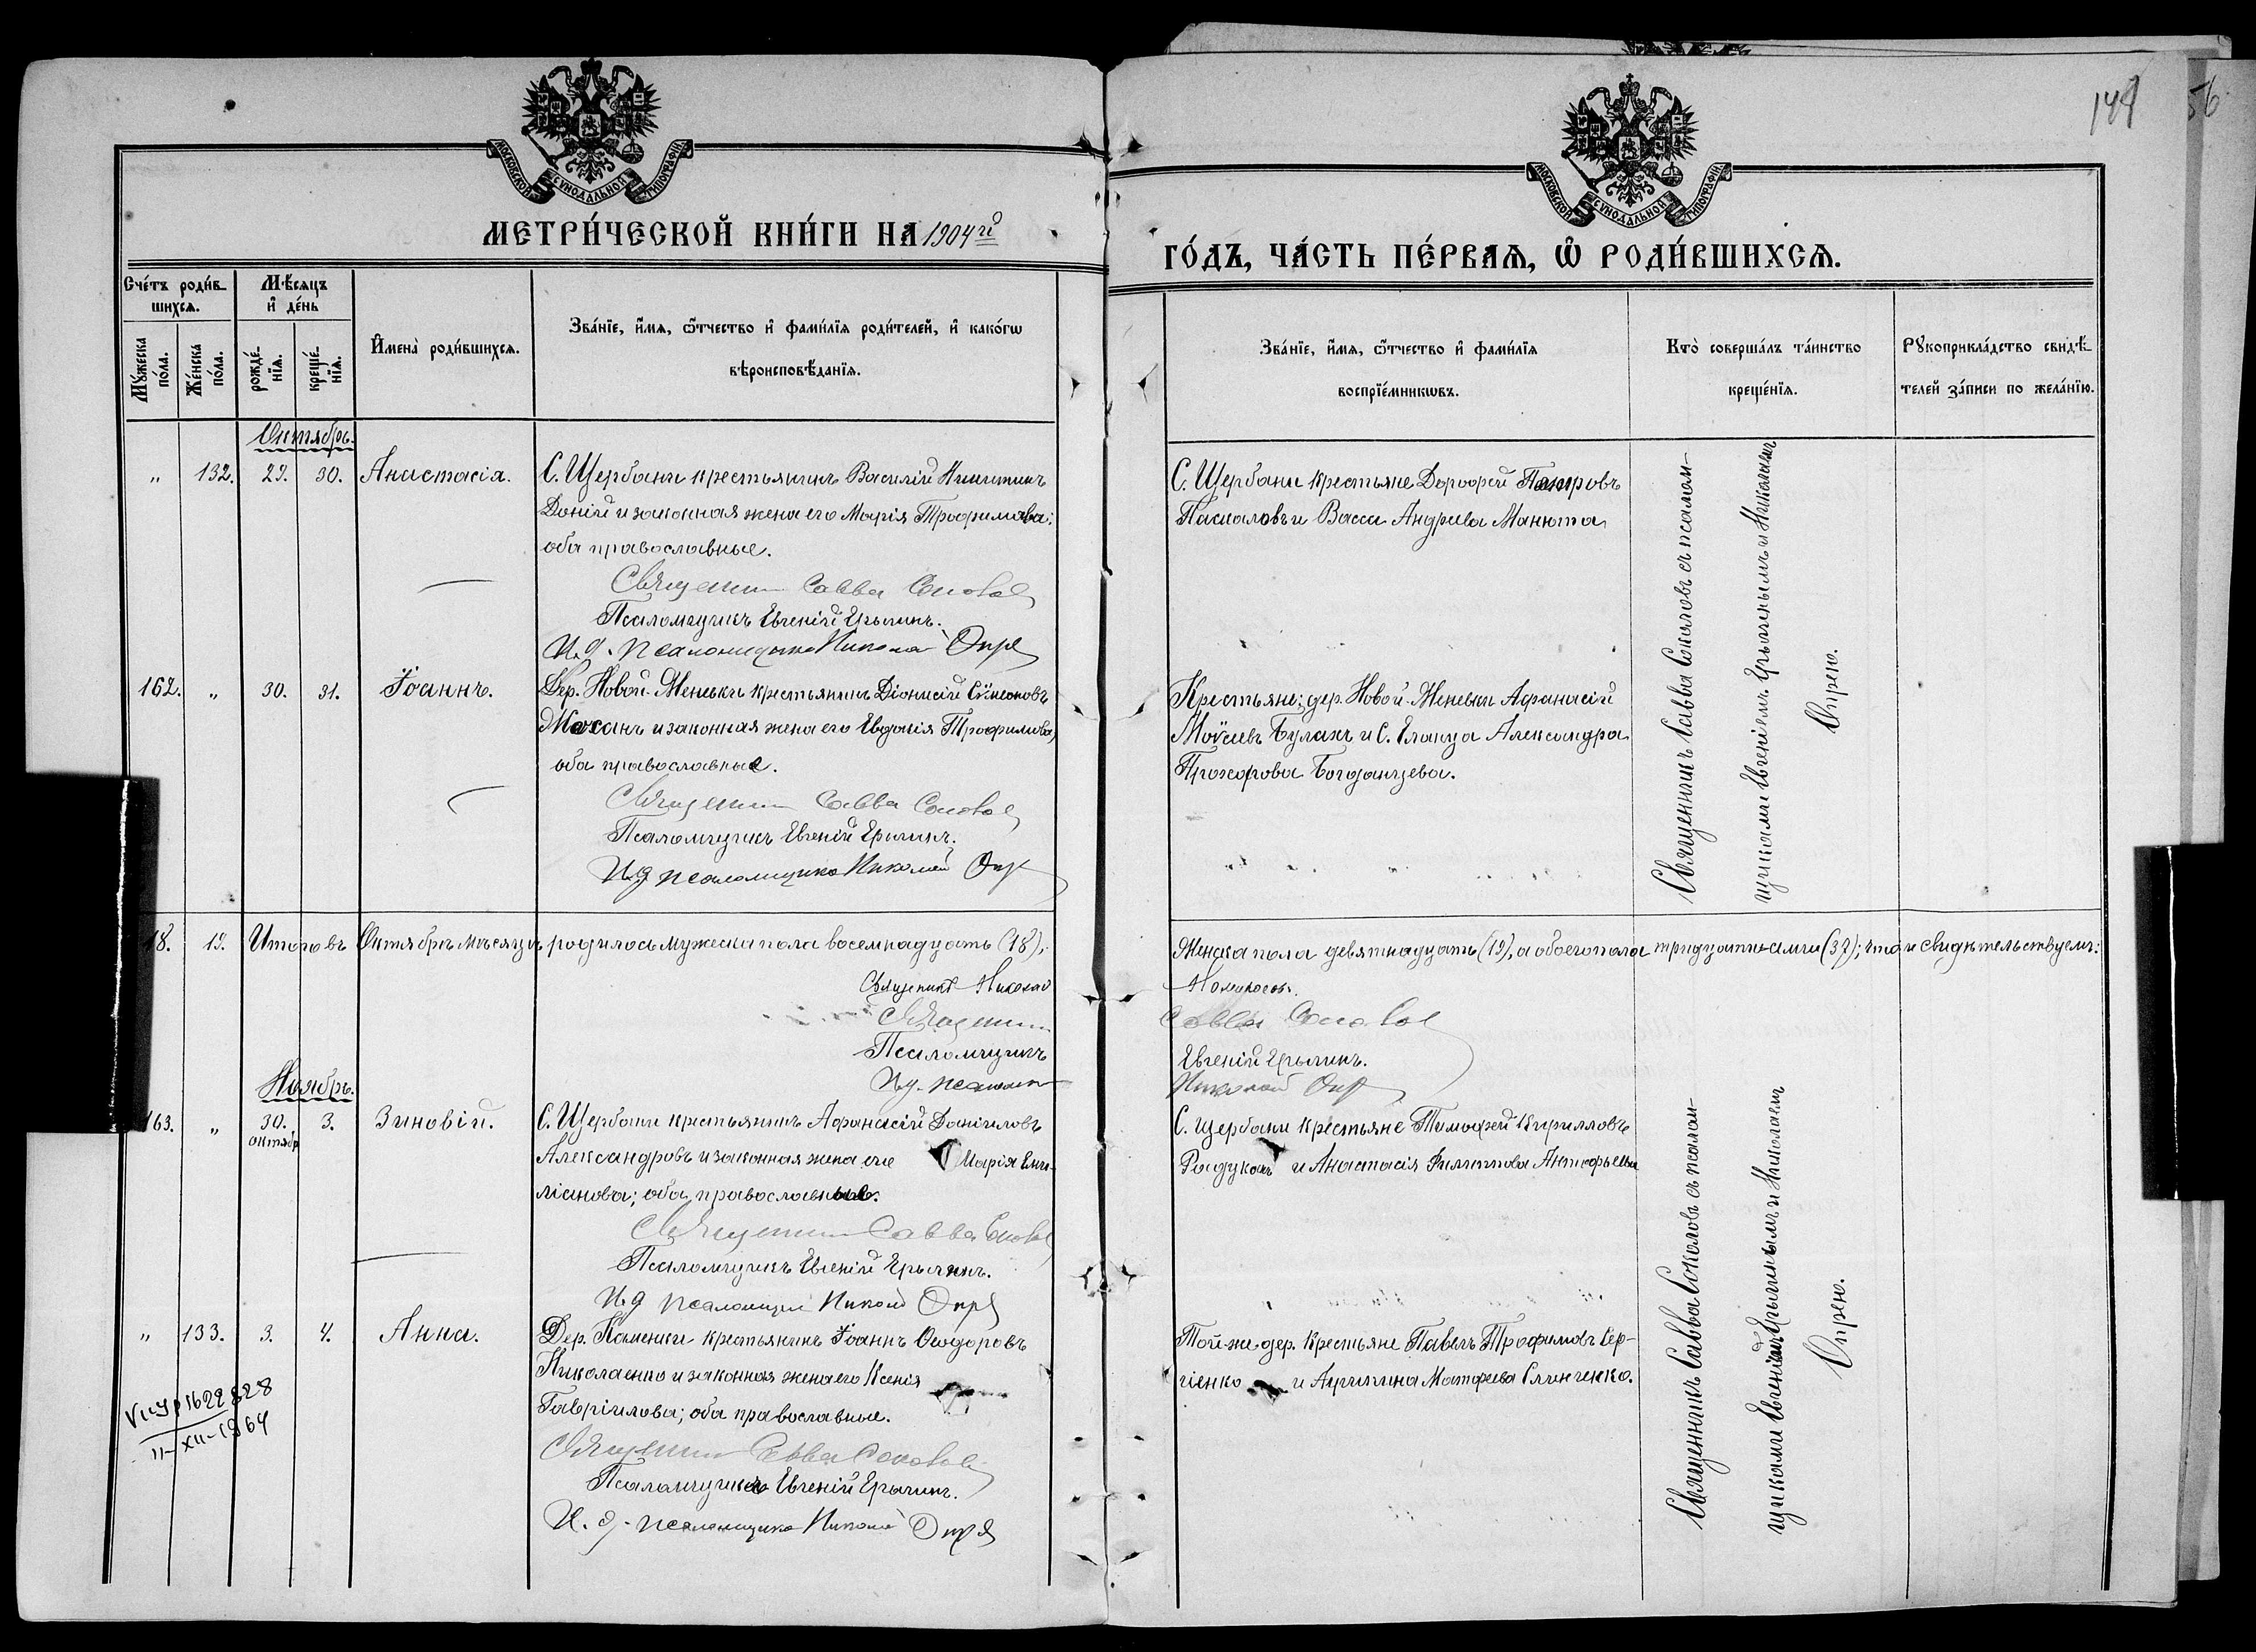 149
56
МОСКОВСКОЙ СѴНОДАЛЬНОЙ ТИПОГРАФІИ.
МОСКОВСКОЙ СѴНОДАЛЬНОЙ ТИПОГРАФІИ.
МЕТРИ́ЧЕСКОЙ КНИ́ГИ НА 1904 й
ГО́ДЪ, ЧА́СТЬ ПЕ́РВАѦ, Ѽ РОДИ́ВШИХСѦ.
Сче́тъ роди́в-
шихсѧ.
Мꙋ́жеска
по́ла.
Же́нска
по́ла.
Мѣ́сяцъ
и҆ де́нь
рожде́-
нїѧ.
креще́-
нїѧ.
И҆мена̀ роди́вшихсѧ.
Зва́нїе, и҆́мѧ, ѻ҆́тчество и҆ фами́лїѧ роди́телей, и҆ како́гѡ
вѣроисповѣ́данїѧ.
Зва́нїе, и҆́мѧ, ѻ҆́тчество и҆ фами́лїѧ
воспрїе́мникѡвъ.
Кто̀ соверша́лъ та́инство
креще́нїѧ.
Рꙋкоприкла́дство свидѣ́-
телей за́писи по жела́нїю.
Октябрь.
" 132. 29. 30. Анастасія. С. Щербани крестьянинъ Василій Никитинъ
Доній и законная жена его Марія Трофимова;
оба православные.
Священник Савва Соколов
Псаломщикъ Евгеній Ерыгинъ.
И. д. псаломщика Николай Опря
С. Щербани крестьяне Дорофей Петровъ
Паскаловъ и Васса Андреева Манюта
Священникъ Савва Соколовъ съ псалом-
щиками Евгеніемъ Ерыгинымъ и Николаемъ
Опрею.
162. " 30. 31. Іоаннъ. Дер. Новой-Женевки крестьянинъ Діонисій Сѵмеоновъ
Моканъ и законная жена его Евдокія Трофимова,
оба православные.
Священник Савва Соколов
Псаломщикъ Евгеній Ерыгинъ.
И. д псаломщика Николай Опря
Крестьяне: дер. Новой-Женевки Афанасій
Моѵсеевъ Булахъ и С. Еланца Александра
Прохорова Богданцева.
18. 19. Итого въ Октябрѣ мѣсяцѣ родилось мужеска пола восемнадцать (18);
Женска пола девятнадцать (19), а обоего пола тридцать семь (37); что и свидѣтельствуемъ:
Священникъ Николай
Священник Савва Соколов
Псаломщикъ Евгеній Ерыгинъ.
И. д. псаломщ Николай Опря
Ноябрь.
163. " 30. октябр 3. Зиновій. С. Щербани крестьянинъ Афанасій Даніиловъ
Александровъ и законная жена его Марія Еми-
ліанова; оба православные.
Священник Савва Соколов
Псаломщикъ Евгеній Ерыгинъ.
И. д псаломщика Николай Опря
С. Щербани крестьяне Тимофей Кирилловъ
Радуканъ и Анастасія Филиппова
Священникъ Савва Соколовъ съ псалом-
щиками Евгеніемъ Ерыгинымъ и Николаемъ
Опрею.
" 133. 3. 4. Анна. Дер. Каменки крестьянинъ Іоаннъ Ѳеодоровъ
Николаенко и законная жена его Ксенія
Гавріилова; оба православные.
Священник Савва Соколов
Псаломщикъ Евгеній Ерыгинъ.
И. д. псаломщика Николай Опря
Той-же дер. крестьяне Павелъ Трофимовъ Сер-
гіенко и Агрипина Матфеева Слинченко.
1622828
11-XII-1964